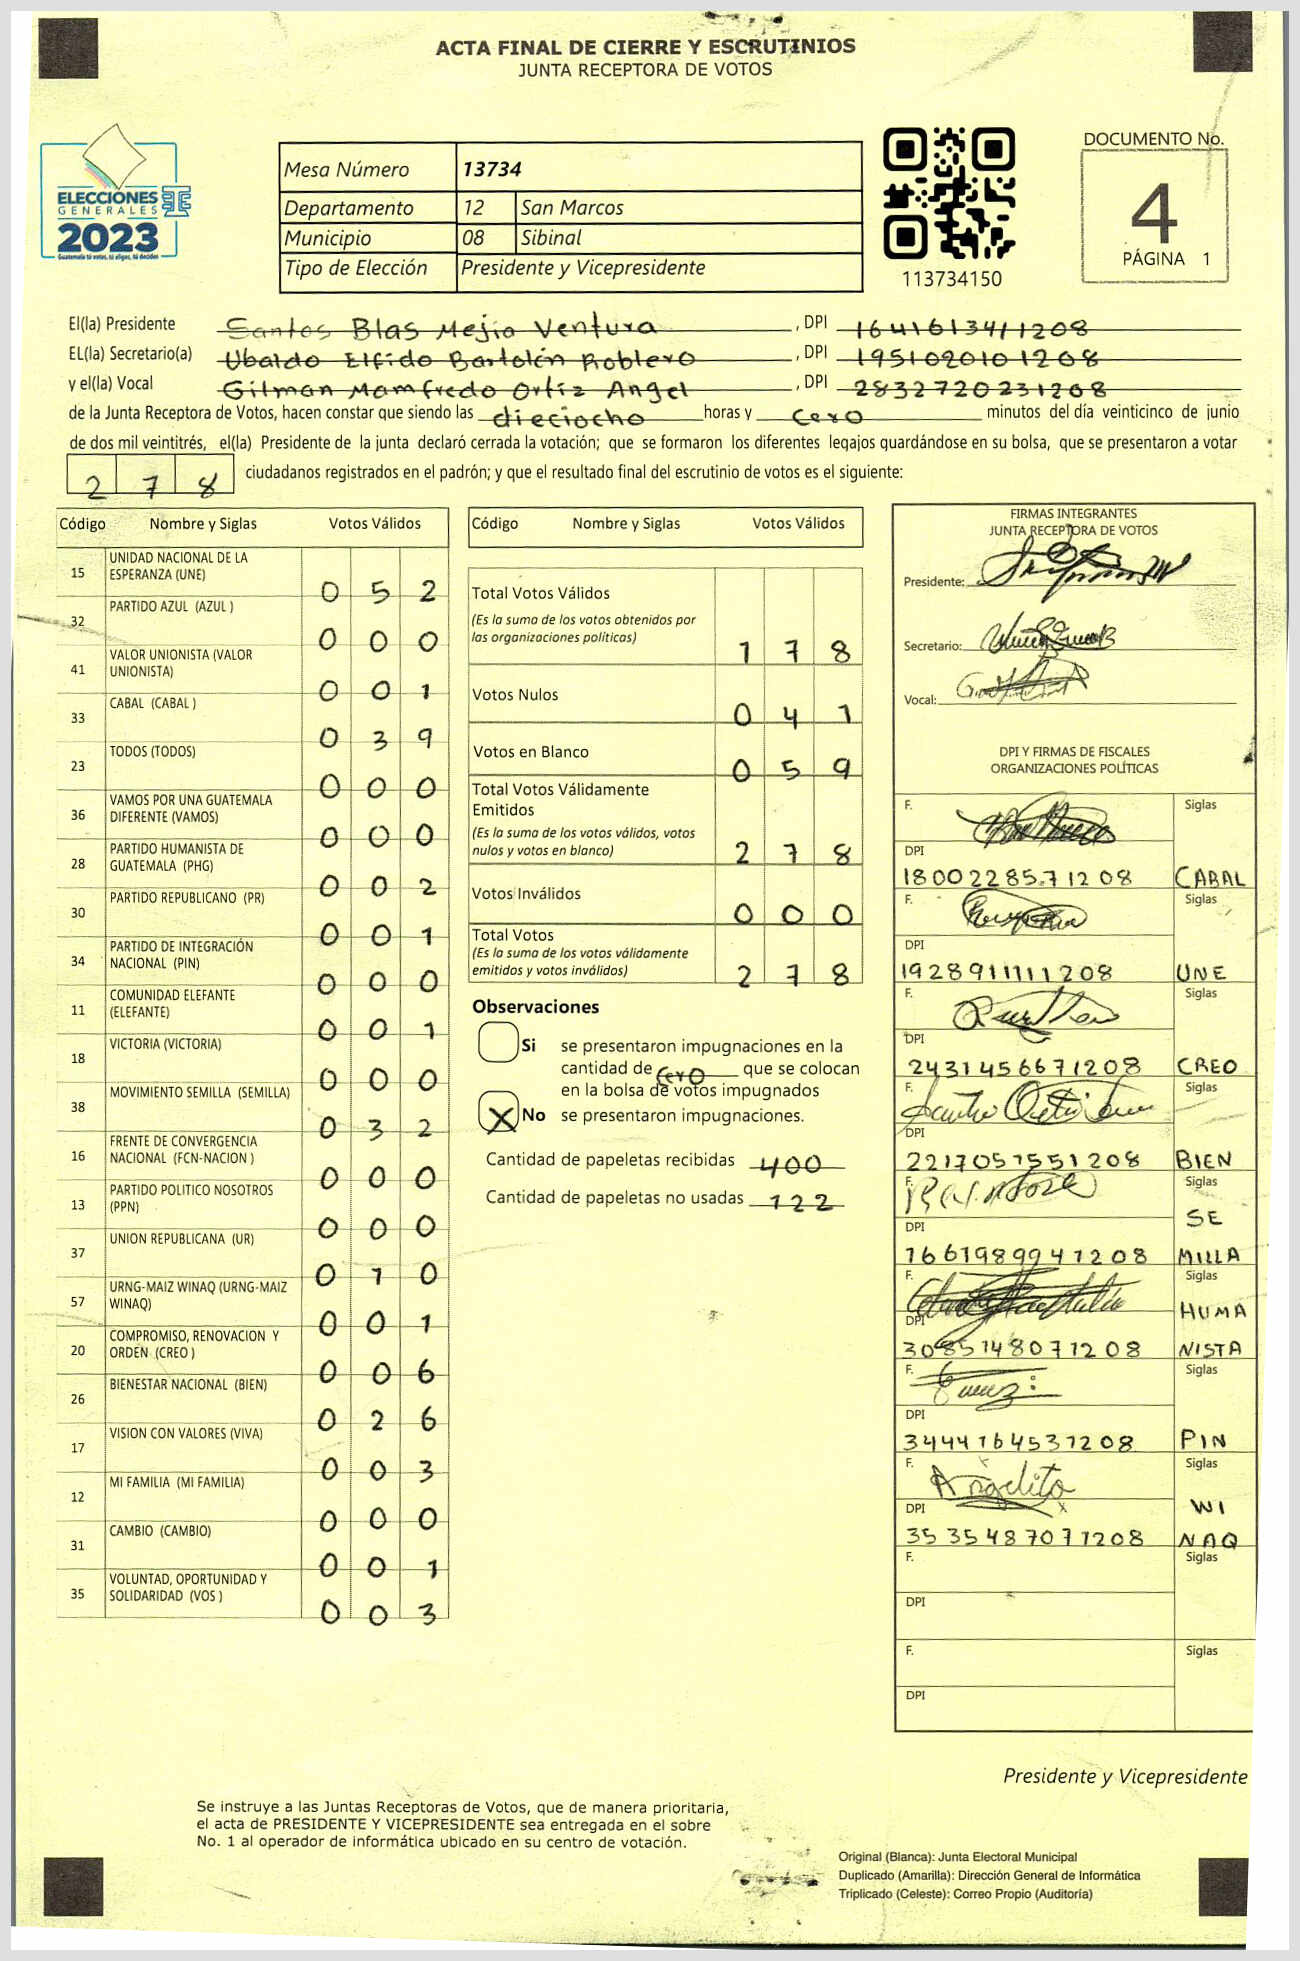 ACTA FINAL DE CIERRE Y ESCRUTINIOS
JUNTA RECEPTORA DE VOTOS
ELECCIONES
GENERALES
2023
Guatemala tú votas, tú eliges, tú decides
Mesa Número 13734
Departamento 12 San Marcos
Municipio 08 Sibinal
Tipo de Elección Presidente y Vicepresidente
113734150
DOCUMENTO No.
4
PÁGINA 1
El(la) Presidente Santos Blas Mejia Ventura, DPI 1641613411208
EL(la) Secretario(a) Ubaldo Elfido Bartolón Roblero, DPI 1951020101208
y el(la) Vocal Gilman Mamfredo Ortiz Angel, DPI 2832720231208
de la Junta Receptora de Votos, hacen constar que siendo las dieciocho horas y cero minutos del día veinticinco de junio
de dos mil veintitrés, el(la) Presidente de la junta declaró cerrada la votación; que se formaron los diferentes legajos guardándose en su bolsa, que se presentaron a votar
278 ciudadanos registrados en el padrón; y que el resultado final del escrutinio de votos es el siguiente:
Código Nombre y Siglas Votos Válidos
15 UNIDAD NACIONAL DE LA ESPERANZA (UNE) 0 5 2
32 PARTIDO AZUL (AZUL ) 0 0 0
41 VALOR UNIONISTA (VALOR UNIONISTA) 0 0 1
33 CABAL (CABAL ) 0 3 9
23 TODOS (TODOS) 0 0 0
36 VAMOS POR UNA GUATEMALA DIFERENTE (VAMOS) 0 0 0
28 PARTIDO HUMANISTA DE GUATEMALA (PHG) 0 0 2
30 PARTIDO REPUBLICANO (PR) 0 0 1
34 PARTIDO DE INTEGRACIÓN NACIONAL (PIN) 0 0 0
11 COMUNIDAD ELEFANTE (ELEFANTE) 0 0 1
18 VICTORIA (VICTORIA) 0 0 0
38 MOVIMIENTO SEMILLA (SEMILLA) 0 3 2
16 FRENTE DE CONVERGENCIA NACIONAL (FCN-NACION ) 0 0 0
13 PARTIDO POLITICO NOSOTROS (PPN) 0 0 0
37 UNION REPUBLICANA (UR) 0 1 0
57 URNG-MAIZ WINAQ (URNG-MAIZ WINAQ) 0 0 1
20 COMPROMISO, RENOVACION Y ORDEN (CREO ) 0 0 6
26 BIENESTAR NACIONAL (BIEN) 0 2 6
17 VISION CON VALORES (VIVA) 0 0 3
12 MI FAMILIA (MI FAMILIA) 0 0 0
31 CAMBIO (CAMBIO) 0 0 1
35 VOLUNTAD, OPORTUNIDAD Y SOLIDARIDAD (VOS ) 0 0 3
Código Nombre y Siglas Votos Válidos
Total Votos Válidos
(Es la suma de los votos obtenidos por
las organizaciones políticas) 1 7 8
Votos Nulos 0 4 1
Votos en Blanco 0 5 9
Total Votos Válidamente
Emitidos
(Es la suma de los votos válidos, votos
nulos y votos en blanco) 2 7 8
Votos Inválidos 0 0 0
Total Votos
(Es la suma de los votos válidamente
emitidos y votos inválidos) 2 7 8
Observaciones
Si se presentaron impugnaciones en la
cantidad de cero que se colocan
en la bolsa de votos impugnados
X No se presentaron impugnaciones.
Cantidad de papeletas recibidas 400
Cantidad de papeletas no usadas 122
FIRMAS INTEGRANTES
JUNTA RECEPTORA DE VOTOS
Presidente:
Secretario:
Vocal:
DPI Y FIRMAS DE FISCALES
ORGANIZACIONES POLÍTICAS
F. Siglas
DPI
1800228571208 CABAL
F. Siglas
DPI
1928911111208 UNE
F. Siglas
DPI
2431456671208 CREO
F. Siglas
DPI
2217051551208 BIEN
F. Siglas
DPI SE
1661989941208 MILLA
F. Siglas
DPI HUMA
3085148071208 NISTA
F. Siglas
DPI
3444164531208 PIN
F. Angelito Siglas
DPI WI
3535487071208 NAQ
F. Siglas
DPI
F. Siglas
DPI
Presidente y Vicepresidente
Se instruye a las Juntas Receptoras de Votos, que de manera prioritaria,
el acta de PRESIDENTE Y VICEPRESIDENTE sea entregada en el sobre
No. 1 al operador de informática ubicado en su centro de votación.
Original (Blanca): Junta Electoral Municipal
Duplicado (Amarilla): Dirección General de Informática
Triplicado (Celeste): Correo Propio (Auditoría)